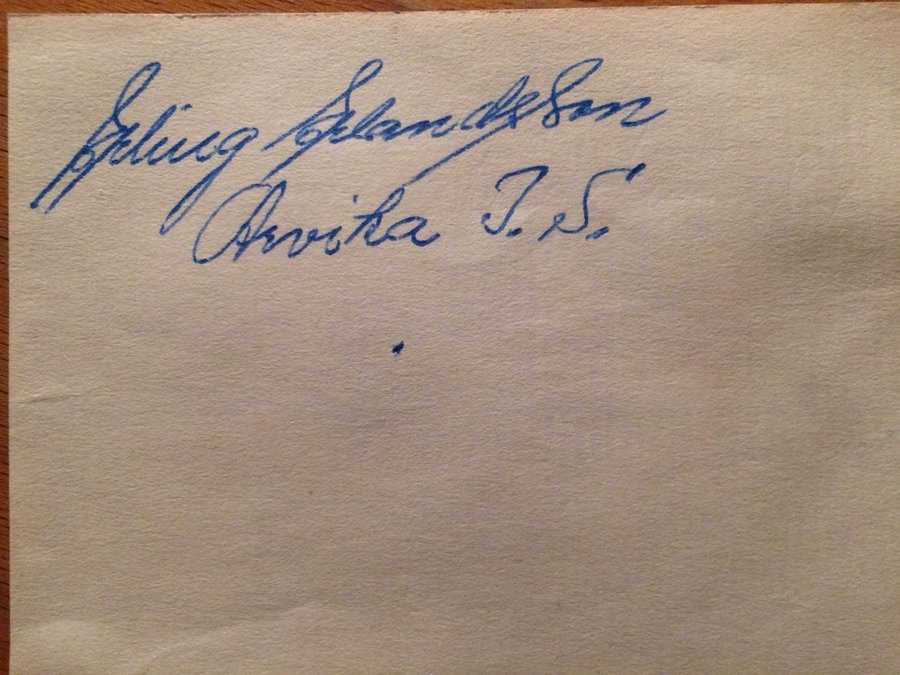 Erling Erlandsson
Arvika I. S.